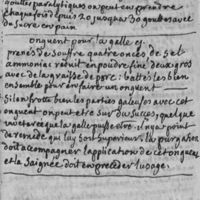 gouttes paralytiques on peut en prendre
chaque fois depuis 20 jusqu'a 30 gouttes avec
du sucre en pain
onguent pour la galle
prenés de soufre quatre onces de sel
ammoniac reduit en poudre fine deux gros
avec de la graisse de porc: battés les bien
ensemble pour en faire un onguent
Si l'on frotte bien les parties galeuses avec cet
onguent on peut etre sur du succes, quelque
inveteree que la galle puisse etre. il n'y a point
de remede qui luy soit superieur. la purgation
doit accompagner l'application de cet onguent
et la Saignée doit en preceder l'usage.